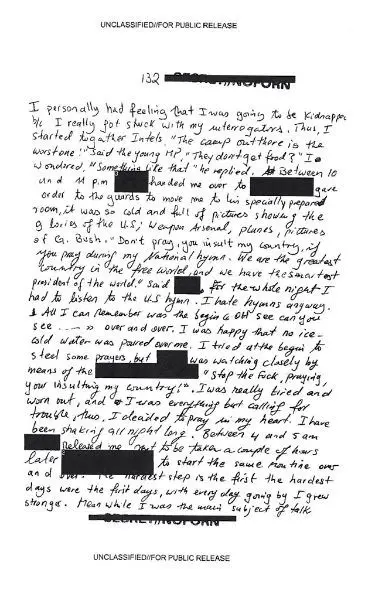 UNCLASSIFIED//FOR PUBLIC RELEASE
132 SECRET//NOFORN
I personally had feeling that I was going to be kidnapped
b/c I really got stuck with my interrogators. Thus, I
started to gather Intels. "The camp out there is the
worst one!" Said the young MP. "They don't get food?" I
wondered, "Something like that" he replied. Between 10
and 11 p.m handed me over to gave
order to the guards to move me to his specially prepared
room, it was so cold and full of pictures showing the
glories of the U.S, Weapon Arsenal, planes, pictures
of G. Bush. "Don't pray, you insult my country, if
you pray during my National hymn. We are the greatest
Country in the free world, and we have the smartest
president of the world." Said for the whole night I
had to listen to the U.S hymn. I hate hymns anyway.
All I can remember was the begin "Oh! see can you
see ....." over and over. I was happy that no ice-
cold water was poured over me. I tried at the begin to
steel some prayers, but was watching closely by
means of the "Stop the Fuck, praying,
you insulting my country!". I was really tired and
worn out, and I was everything but calling for
trouble, thus, I decided to pray in my heart. I have
been shaking all night long. Between 4 and 5 am
released me to be taken a couple of hours
later to start the same routine over
and over. The hardest step is the first the hardest
days were the first days, with every day going by I grew
stronger. Mean while I was the main subject of talk
SECRET//NOFORN
UNCLASSIFIED//FOR PUBLIC RELEASE